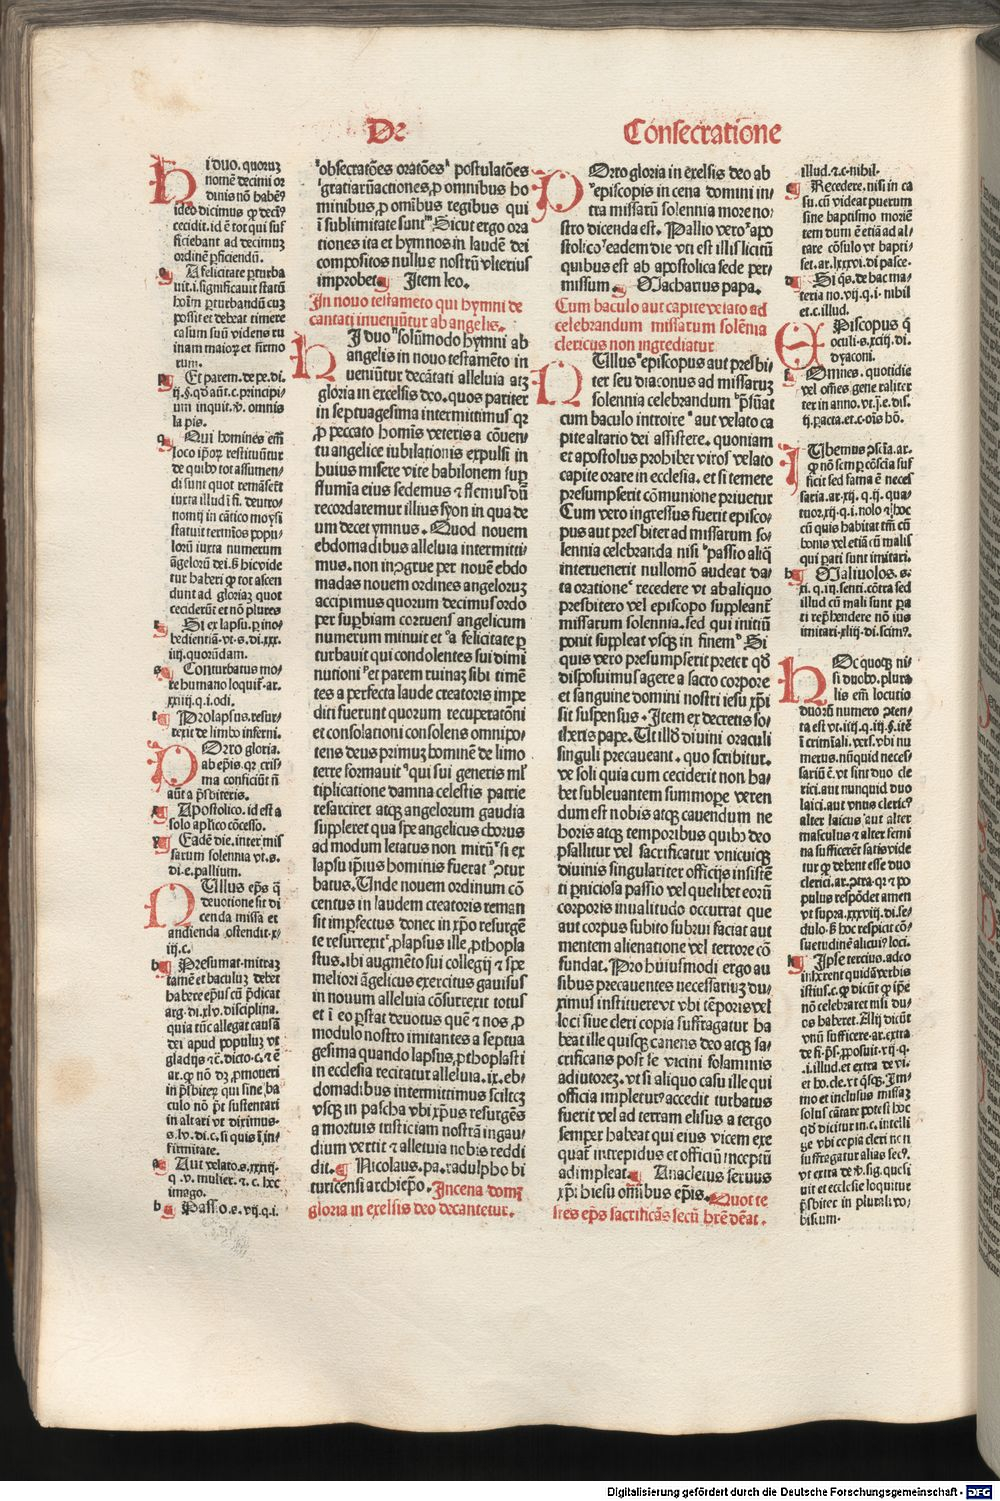 De Consecratione
i duo. quoruȝ
nomē decimi or
dinis nō habēꝰ
ideo dicimus ꝙ deciꝰ
cecidit. id ē tot qui suf
ficiebant ad decimuȝ
ordinē ꝑficiendū.
A felicitate ꝑturba
uit. i. significauit statū
hoīm ꝑturbandū cuȝ
possit et debeat timere
casum suū videns ru
inam maioꝝ et firmo
rum.
Et parem. de pe. di.
ij. §. qđ aūt. c. principi-
um inquit. ꝟ. omnis
la pis.
Qui homines em̄
loco ipoꝝ restituūtur
de quibꝰ tot assumen-
di sunt quot remāserūt
iuxta illud ī fi. deutro-
nomij in cātico moysi
statuit termīos popu-
lorū iuxta numerum
āgelorū dei. ß hic vide
tur haberi ꝙ tot ascen
dunt ad gloriaȝ quot
ceciderūt et nō plures
Si ex lapsu. ꝑ ino-
bedientiā. vt. s. di. xxx.
iiij. quorūdam.
Conturbatus mo-
re humano loquit̄. ar.
xxiiij. q. i. odi.
Prolapsus. resur-
rexit de limbo inferni.
Orro gloria.
ab ep̄is. qꝛ cris-
ma conficiūt n̄
aūt a p̄sbiteris.
Apostolico. id est a
solo aplico cōcesso.
Eadē die. inter mis
sarum solennia vt. s.
di. e. pallium.
Ullus ep̄s q̄
deuotione sit di
cenda missa et
audienda ostendit. x-
iij. c.
Presumat. mitraȝ
tamē et baculuȝ debet
habere ep̄us cū p̄dicat
arg. di. xlv. disciplina.
quia tūc allegat causā
dei apud populuȝ vt
gladijs ⁊ē. dicto. c. ⁊ ē
ar. ꝙ nō dȝ ꝓmoueri
in p̄sbiteꝝ qui sine ba
culo nō p̄t sustentari
in altari vt diximus.
s. lv. di. c. si quis ī in-
firmitate.
Aut velato. s. xxxiij-
q. v. mulier. ⁊. c. hec
imago.
Passio. s. vij. q. i.
obsecratōes oratōes postulatōes
gratiarūactiones, ꝓ omnibus ho
minibus, ꝓ om̄ibus regibus qui
ī sublimitate sunt. Sicut ergo ora
tiones ita et hymnos in laudē dei
compositos nullus nostrū vlterius
improbet. Item leo.
In nouo testamēto qui hymni de
cantati inueniūtur ab angelis.
I duo solūmodo hymni ab
angelis in nouo testamēto in
ueniūtur decātati alleluia atȝ
gloria in excelsis deo. quos pariter
in septuagesima intermittimus qꝛ
ꝓ peccato homīs veteris a cōuen-
tu angelice iubilationis expulsi in
huius misere vite babilonem suꝑ
flumīa eius sedemus ⁊ flemus dū
recordaremur illius syon in qua de
um decet ymnus. Quod nouem
ebdomadibus alleluia intermitti-
mus. non incōgrue per nouē ebdo
madas nouem ordines angeloruȝ
accipimus quorum decimus ordo
per suꝑbiam corruens angelicum
numerum minuit et a felicitate ꝑ
turbauit qui condolentes sui dimi
nutioni et parem ruinaȝ sibi timē
tes a perfecta laude creatoris impe
diti fuerunt quorum recuperatōni
et consolationi consolens omnipo-
tens deus primuȝ hominē de limo
terre formauit qui sui generis ml̄
tiplicatione damna celestis patrie
resarciret atqȝ angelorum gaudia
suppleret qua spe angelicus chorus
ad modum letatus non mirū si ex
lapsu ipius hominis fuerat ↄtur
batus. Unde nouem ordinum cō
centus in laudem creatoris reman
sit imꝑfectus donec in xp̄o resurgē
te resurrexit ꝓlapsus ille ꝓthopla
stus. ibi augmēto sui collegij ⁊ spe
meliori āgelicus exercitus gauisus
in nouum alleluia cōsurrexit totus
et ī eo ꝑstat deuotus quē ⁊ nos ꝓ
modulo nostro imitantes a septua
gesima quando lapsus ꝓthoplasti
in ecclesia recitatur alleluia. ix. eb-
domadibus intermittimus scilicȝ
vsqȝ in pascha vbi xp̄us resurgēs
a mortuis tristiciam nostrā in gau-
dium vertit ⁊ alleluia nobis reddi
dit. Nicolaus. pa. radulpho bi
turicensi archiep̄o. In cena domī
gloria in excelsis deo decantetur.
Orro gloria in excelsis deo ab
episcopis in cena domini in-
tra missarū solennia more no-
stro dicenda est. Pallio vero apo
stolico eadem die vti est illis licitū
quibus est ab apostolica sede per-
missum. Macharius papa.
Cum baculo aut capite velato ad
celebrandum missarum solēnia
clericus non ingrediatur
Ullus episcopus aut presbi-
ter seu diaconus ad missaruȝ
solennia celebrandum p̄sūat
cum baculo introire aut velato ca
pite altario dei assistere. quoniam
et apostolus prohibet viros velato
capite orare in ecclesia. et si temere
presumpserit cōmunione priuetur
Cum vero ingressus fuerit episco-
pus aut presbiter ad missarum so-
lennia celebranda nisi passio aliq̄
interuenerit nullomō audeat da-
ta oratione recedere vt ab aliquo
presbitero vel episcopo suppleant̄
missarum solennia. sed qui initiū
ponit suppleat vsqȝ in finem. Si
quis vero presumpserit preter qđ
disposuimus agere a sacro corpore
et sanguine domini nostri iesu xp̄i
sit suspensus. Item ex decretis so-
theris pape. Ut illđ diuini oraculi
singuli precaueant. quo scribitur.
ve soli quia cum ceciderit non ha-
bet subleuantem summope veren
dum est nobis atqȝ cauendum ne
horis atqȝ temporibus quibꝰ deo
psallitur vel sacrificatur vnicuiqȝ
diuinis singulariter officijs insistē
ti ꝑniciosa passio vel quelibet eorū
corporis inualitudo occurrat que
aut corpus subito subrui faciat aut
mentem alienatione vel terrore cō
fundat. Pro huiusmodi ergo au
sibus precauentes necessariuȝ du-
ximus instituere vt vbi tēporis vel
loci siue cleri copia suffragatur ha
beat ille quisqȝ canens deo atqȝ sa-
crificans post se vicini solaminis
adiutoreȝ. vt si aliquo casu ille qui
officia impletur accedit turbatus
fuerit vel ad terram elisus a tergo
semper habeat qui eius vicem exe
quat̄ intrepidus et officiū inceptū
adimpleat. Anacletus seruus
xp̄i hiesu om̄ibus ep̄is. Quot te
stes ep̄s sacrificās secū h̄re d̄eat.
illud. ⁊. c. nihil.
Recedere. nisi in ca
su. cū videat puerum
sine baptismo moriē
tem dum ē etiā ad al-
tare cōsulo vt bapti-
set. ar. lxxxvi. di pasce.
Si q̄s. de hac ma-
teria no. vij. q. i. nihil
et. c. illud.
Piscopus q̄
oculi. s. xciij. di.
dyaconi.
Omnes. quotidie
vel om̄es gene raliter
ter in anno. vt. j. e. dis-
tj. ꝑacta. et. c. oīs hō.
Ubemus pscīa. ar.
ꝙ nō semꝑ cōscia suf
ficit sed fama ē neces
saria. ar. xij. q. ij. qua-
tuor. xij. q. i. nolo ⁊ hoc
cū quis habitat tm̄ cū
bonis vel etiā cū malis
qui pati sunt imitari.
Maliuolos. s.
xi. q. iij. senti. cōtra sed
illud cū mali sunt ꝑa
ti rep̄hendere nō ius
imitari. xliij. di. scimꝰ.
Oc quoqȝ ni-
si duobꝰ. plura
lis em̄ locutio
duorū numero ↄten-
ta est vt. iiij. q. iij. §. itē
ī crimīali. vers. vbi nu
merus. nūquid neces-
sariū ē. vt sint duo cle
rici. aut nunquid duo
laici. aut vnus clericꝰ
alter laicus aut alter
masculus ⁊ alter femi
na sufficeret satis vide
tur ꝙ debent esse duo
clerici. ar. ↄtra. qꝛ ⁊ po
pulus respōdet amen
vt supra. xxxviij. di. se-
dulo. ß hoc respicit cō-
suetudinē alicuiꝰ loci.
Ipse tercius. adeo
inherent quidā verbis
istius. c. ꝙ dicūt ꝙ ip̄e
nō celebraret nisi du-
os haberet. Alij dicūt
vnū sufficere. ar. extra
de fi. p̄s. ꝓposuit. vij. q.
.i. illud. et extra de vi.
et ho. cle. vt qsȝ. Im-
mo et inclusus missaȝ
solus cātare potest hoc
qđ dicitur in. c. intelli
ge vbi copia cleri non
suffragatur alias secꝰ.
vt extra de ꝟ. sig. quesi
uit et ecclesie loquitur
p̄sbiter in plurali. vo-
biscum.
Digitalisierung gefördert durch die Deutsche Forschungsgemeinschaft - DFG